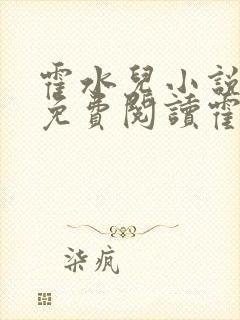 霍水兒小說
免費閱讀霍
柒疯